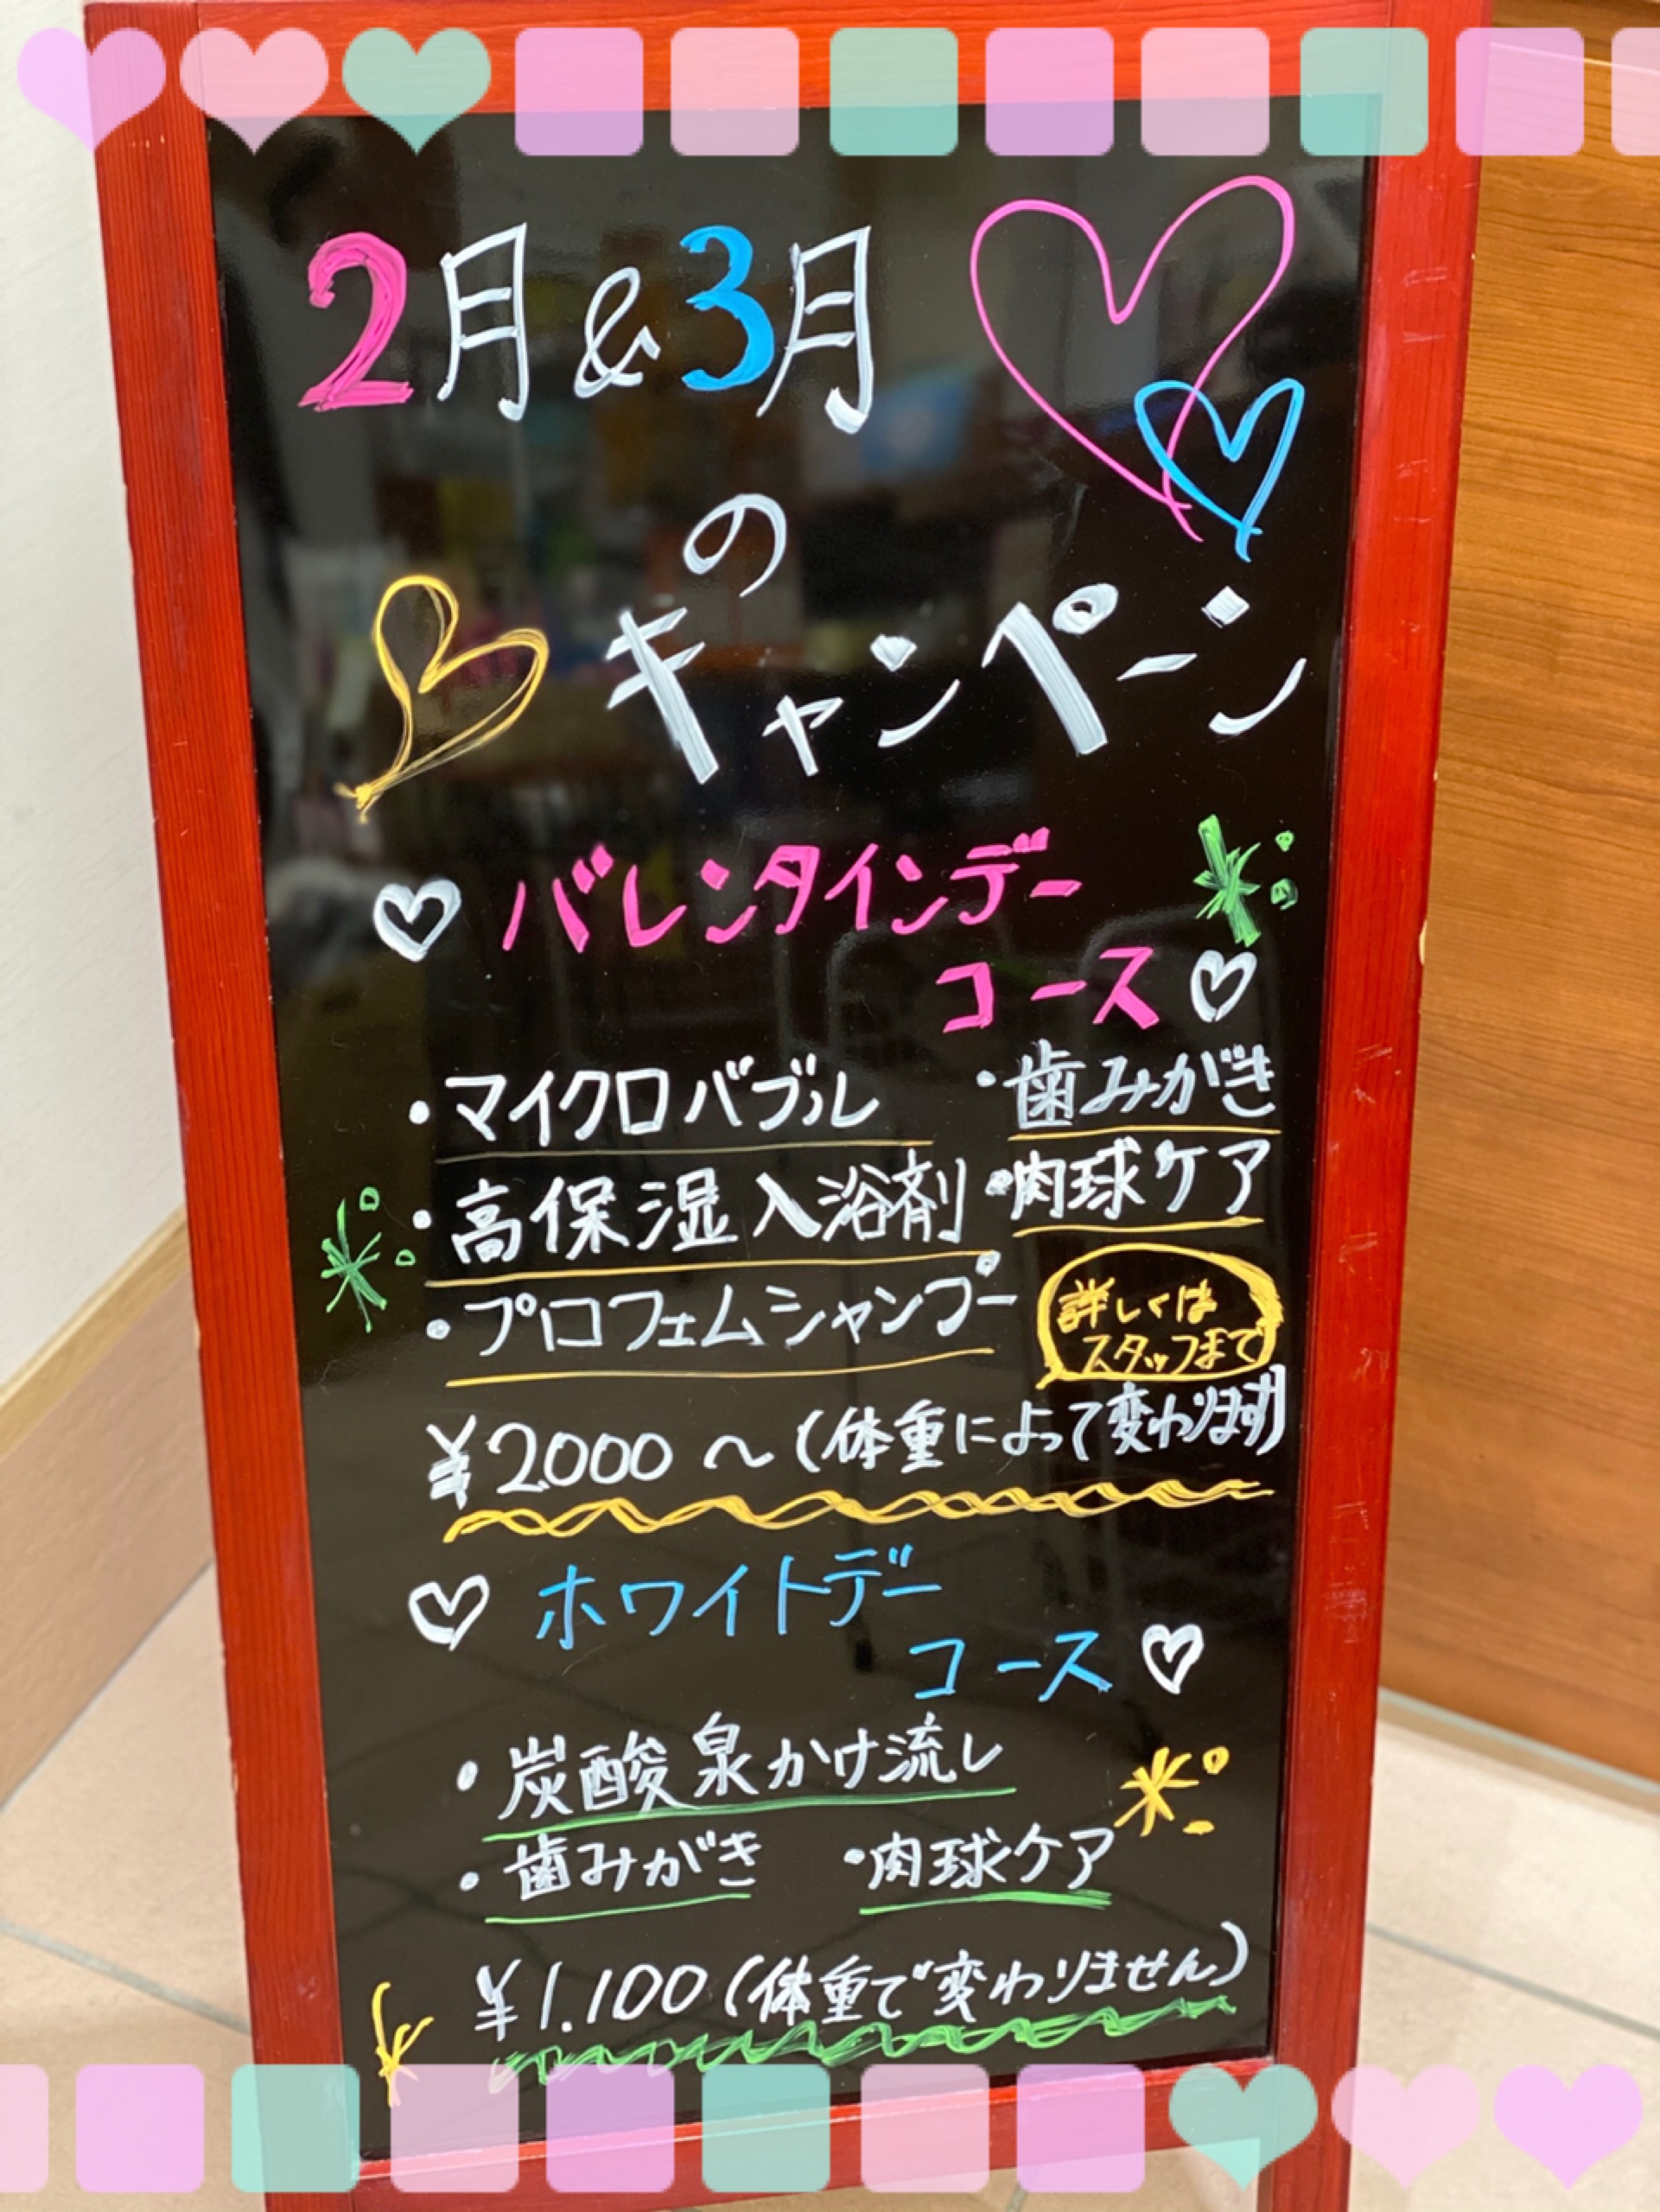 2月&3月
の
キャンペーン
バレンタインデー
コース
・マイクロバブル
・歯みがき
・高保湿入浴剤
・肉球ケア
・プロフェムシャンプー
詳しくは
スタッフまで
¥2000～(体重によって変わります)
ホワイトデー
コース
・炭酸泉かけ流し
・歯みがき
・肉球ケア
¥1.100(体重で変わりません)